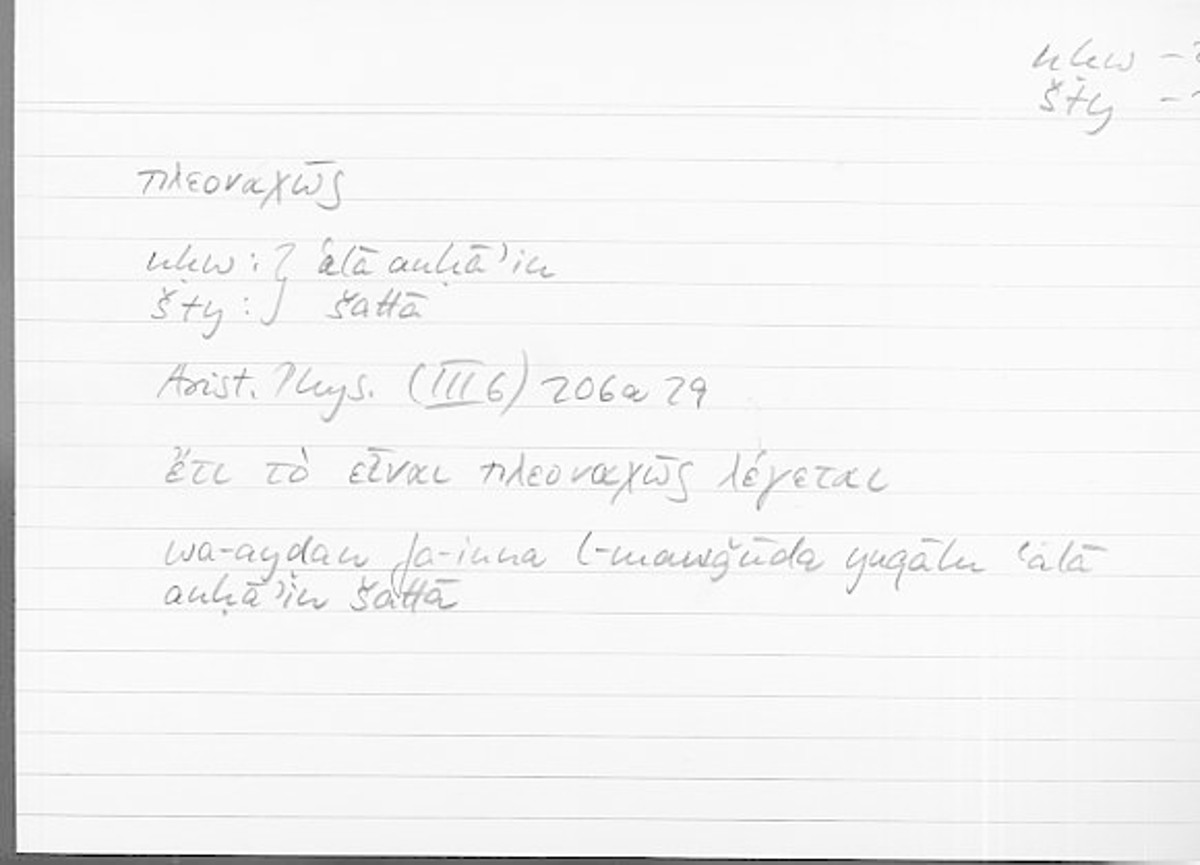 nḥw –
šty –
πλεοναχῶς
nḥw : } ʿalā anḥāʾin
šty : } šattā
Arist. Phys. (III 6) 206a 29
ἔτι τὸ εἶναι πλεοναχῶς λέγεται
wa-ayḍan fa-inna l-mawǧūda yuqālu ʿalā
anḥāʾin šattā